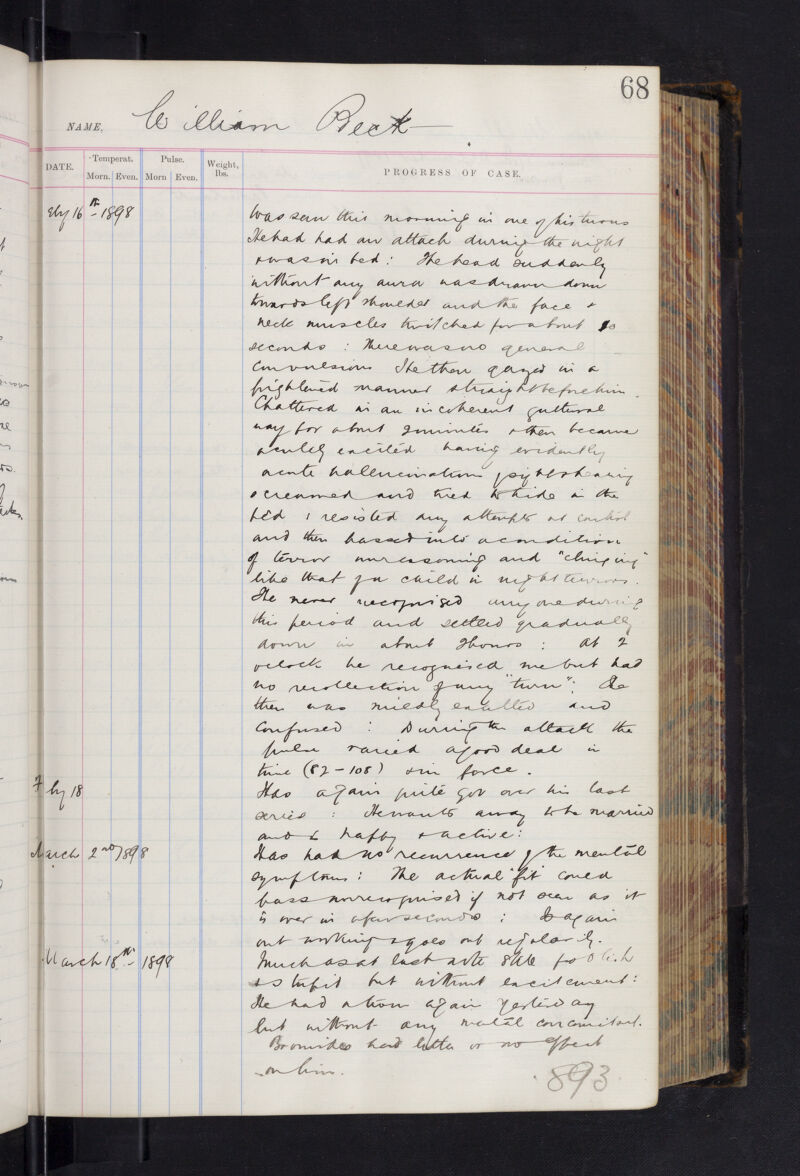 68
NAME. William Beck
DATE. Temperat. Morn. Even. Pulse. Morn Even. Weight, lbs. PROGRESS OF CASE.
eby 16th 1898 Was seen this morning in one of his turns
He had had an attack during the night
& was in bed : The head suddenly
without any aura was drawn down
towards left shoulder and the face &
neck muscles twitched for about 10
seconds : There was no general
convulsion He then gazed in a
frightened manner straight before him.
Chattered in an incoherent guttural
way for about 2 minutes & then became
acutely excited having evidently
acute hallucinations of sight & hearing
screamed and tried to hide in the
bed : resisted any attempts at control
and then passed into a condition
of terror unreasoning and "clinging"
like that of a child in night terrors.
He never recognised anyone during
this period and settled gradually
down in about 2 hours : At 2
oclock he recognised me but had
no recollection of any "turn": He
then was mildly exalted and
confused : During the attack the
pulse varied a good deal in
time (82-108) & in force.
F by 18 Has again quite got over his last
series : He wants away to be married
and is happy & active :
March 2nd 1898 Has had no recurrence of the mental
symptoms : The actual "fit" could
pass unrecognised if not seen as it
is over in a few seconds : Is again
out working & goes out regularly.
March 18th 1898 Much as at last note still foolish
& stupid but without excitement :
He had a turn again yesterday
but without any mental concomitant.
Bromides had little or no effect
on him.
893